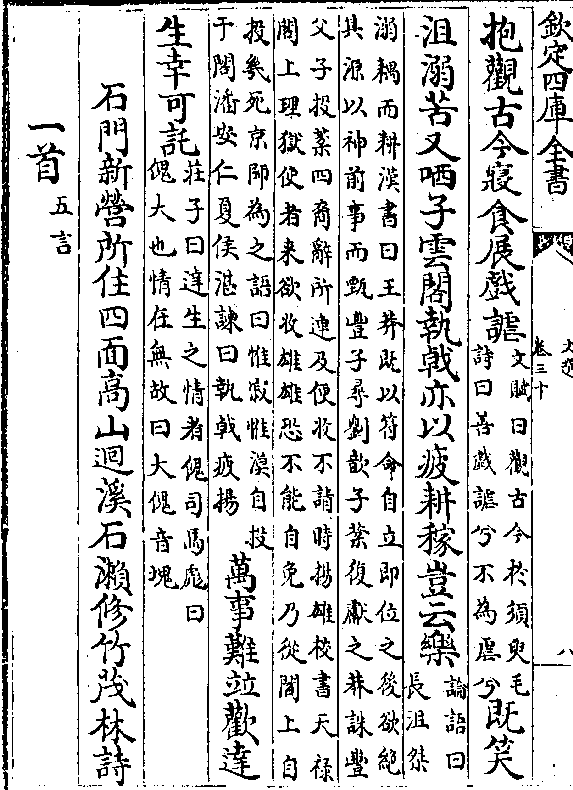 欽定四庫全書
文選
卷三十
八
抱觀古今寢食展戲謔文賦曰觀古今於須臾毛
詩曰善戲謔兮不為虐兮既笑
沮溺苦又哂子雲閣執戟亦以疲耕稼豈云樂論語曰
長沮桀
溺耦而耕漢書曰王莽既以符命自立即位之後欲絕
其源以神前事而甄豐子尋劉歆子棻復獻之莽誅豐
父子投棻四裔辭所連及便收不請時揚雄校書天禄
閣上理獄使者来欲收雄雄恐不能自免乃從閣上自
投幾死京師為之語曰惟寂惟漠自投
于閣潘安仁夏侯湛誄曰執戟疲揚萬事難並歡達
生幸可託莊子曰達生之情者傀司馬彪曰
傀大也情在無故曰大傀音瑰
石門新營所住四面高山迴溪石瀨修竹茂林詩
一首五言